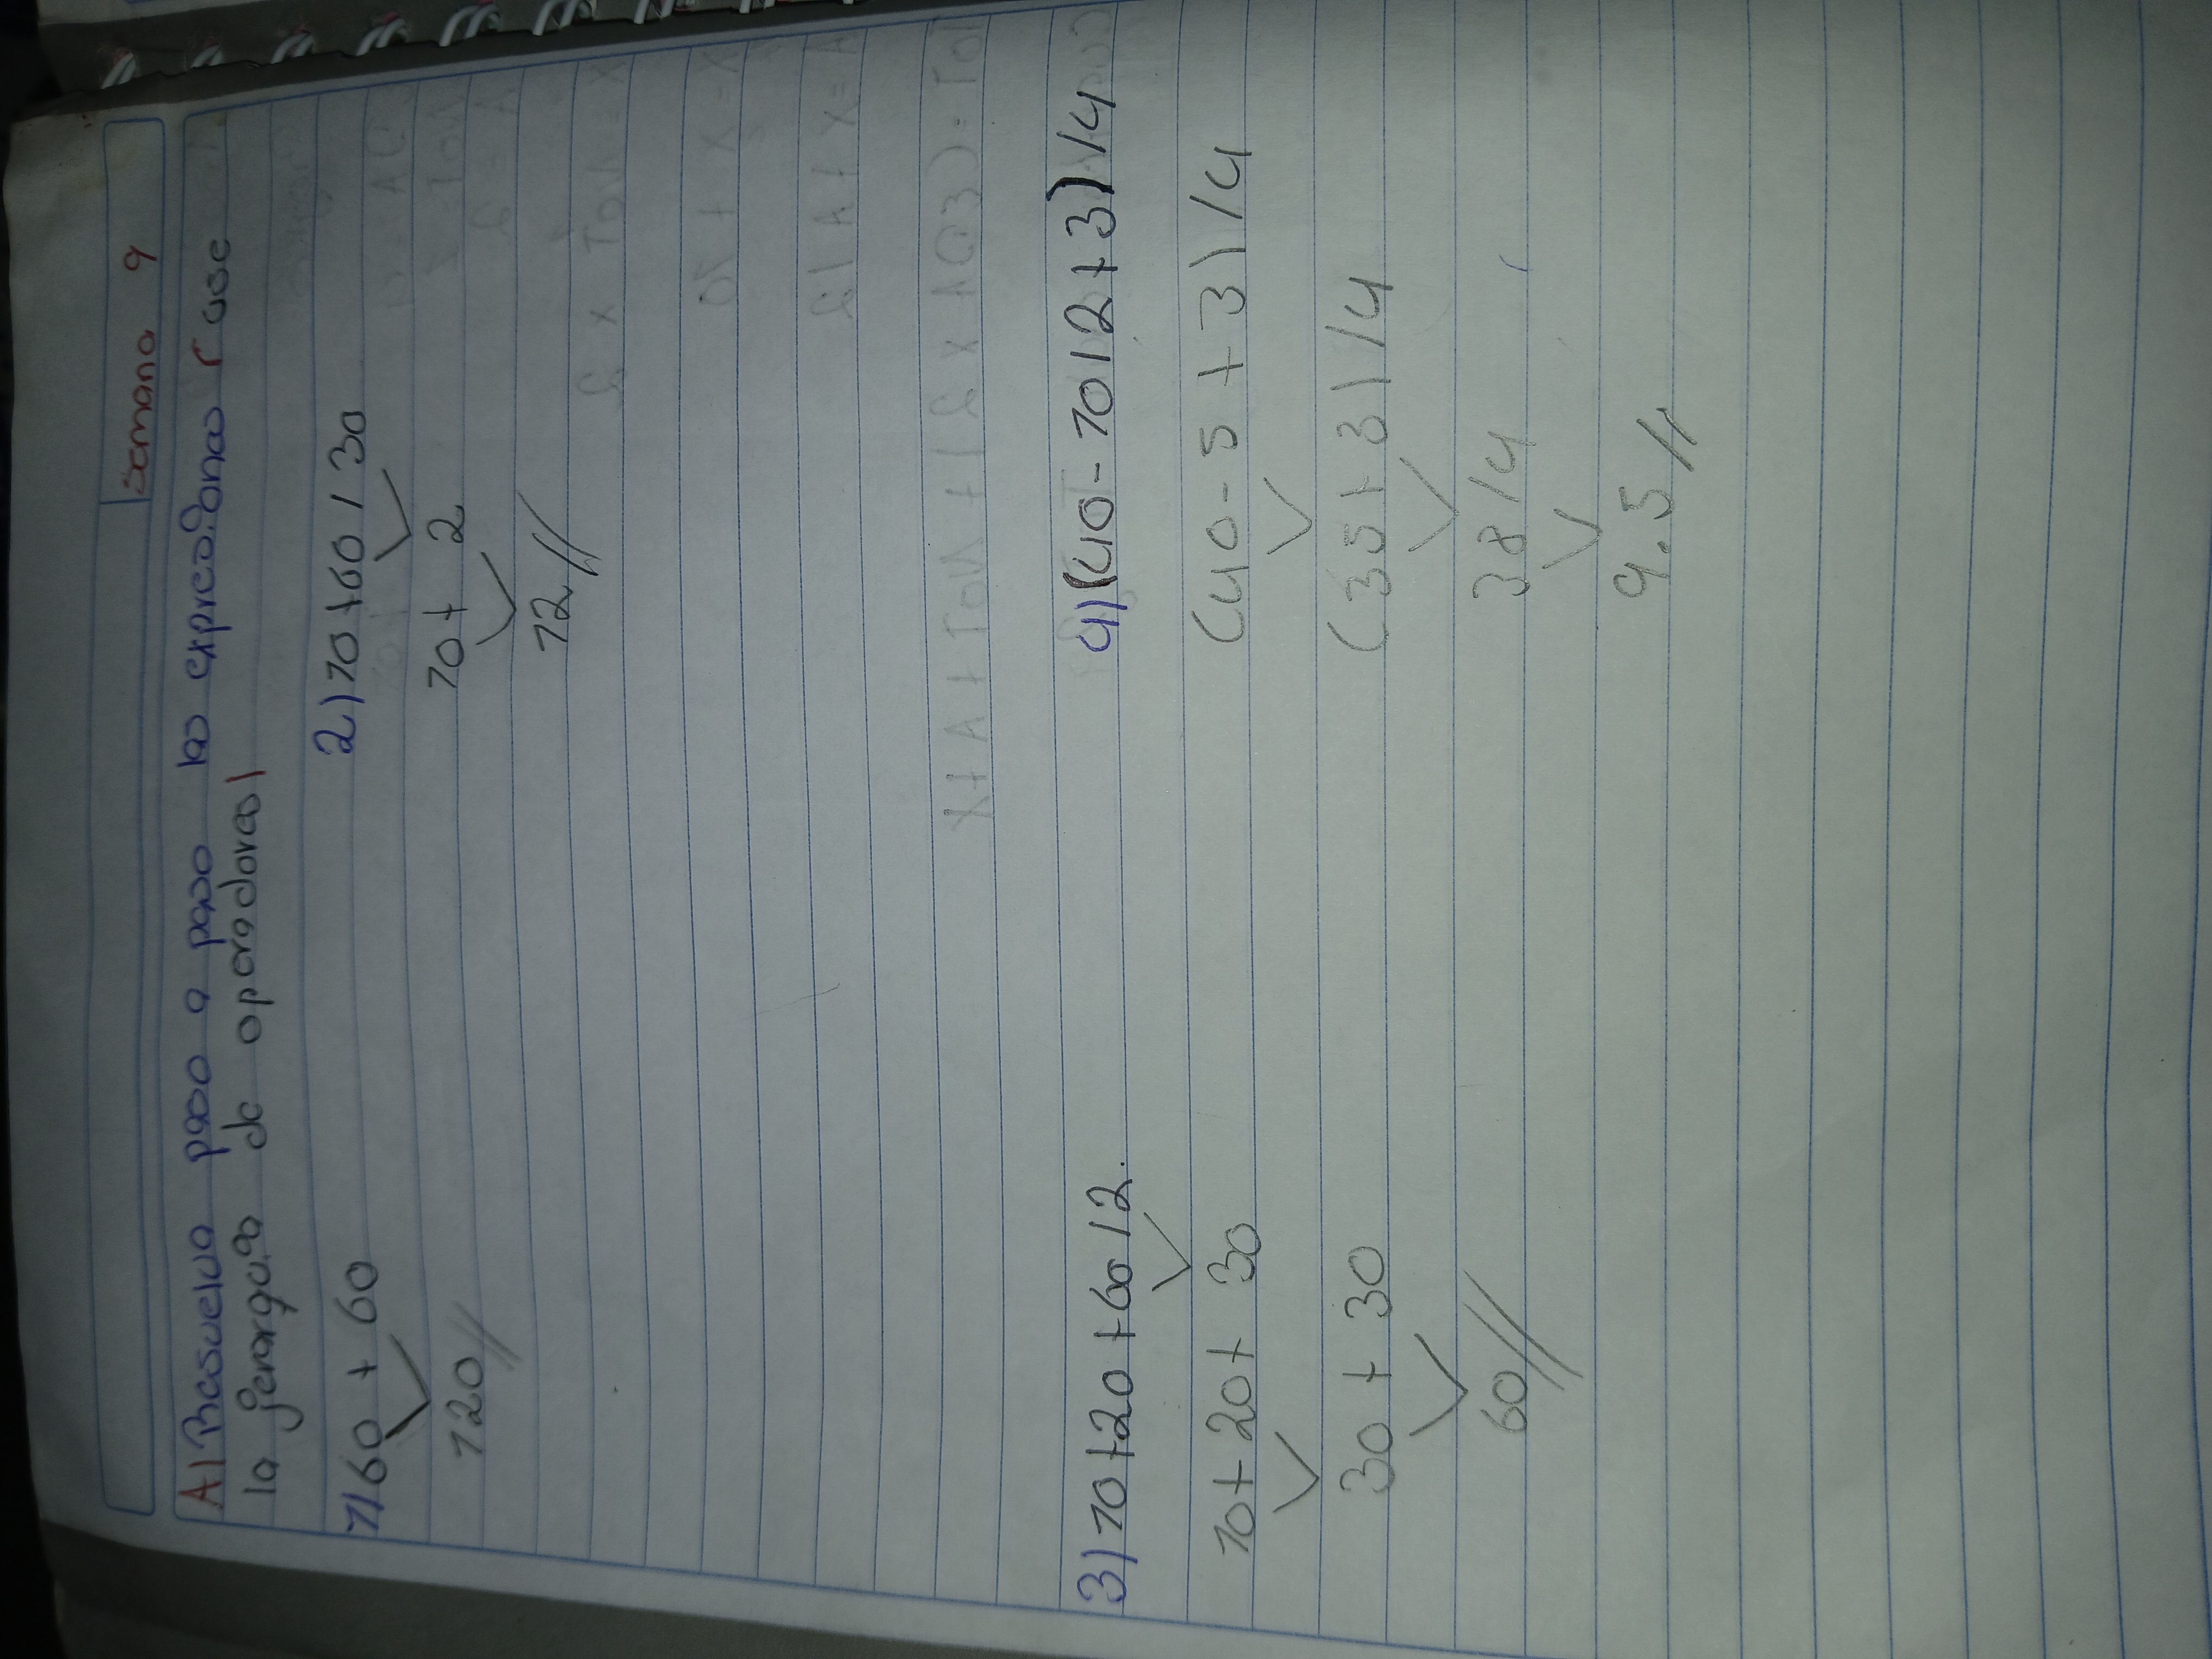 semana 9
A) Resuelva paso a paso las expresiones y use
la jerarquia de operadoras
1) 60 + 60
120//
2) 10 + 60 / 30
10 + 2
12//
3) 10 + 20 + 60 / 2.
10 + 20 + 30
30 + 30
60//
4) (40 - 10 / 2 + 3) / 4
(40 - 5 + 3) / 4
(35 + 3) / 4
38 / 4
9.5 //